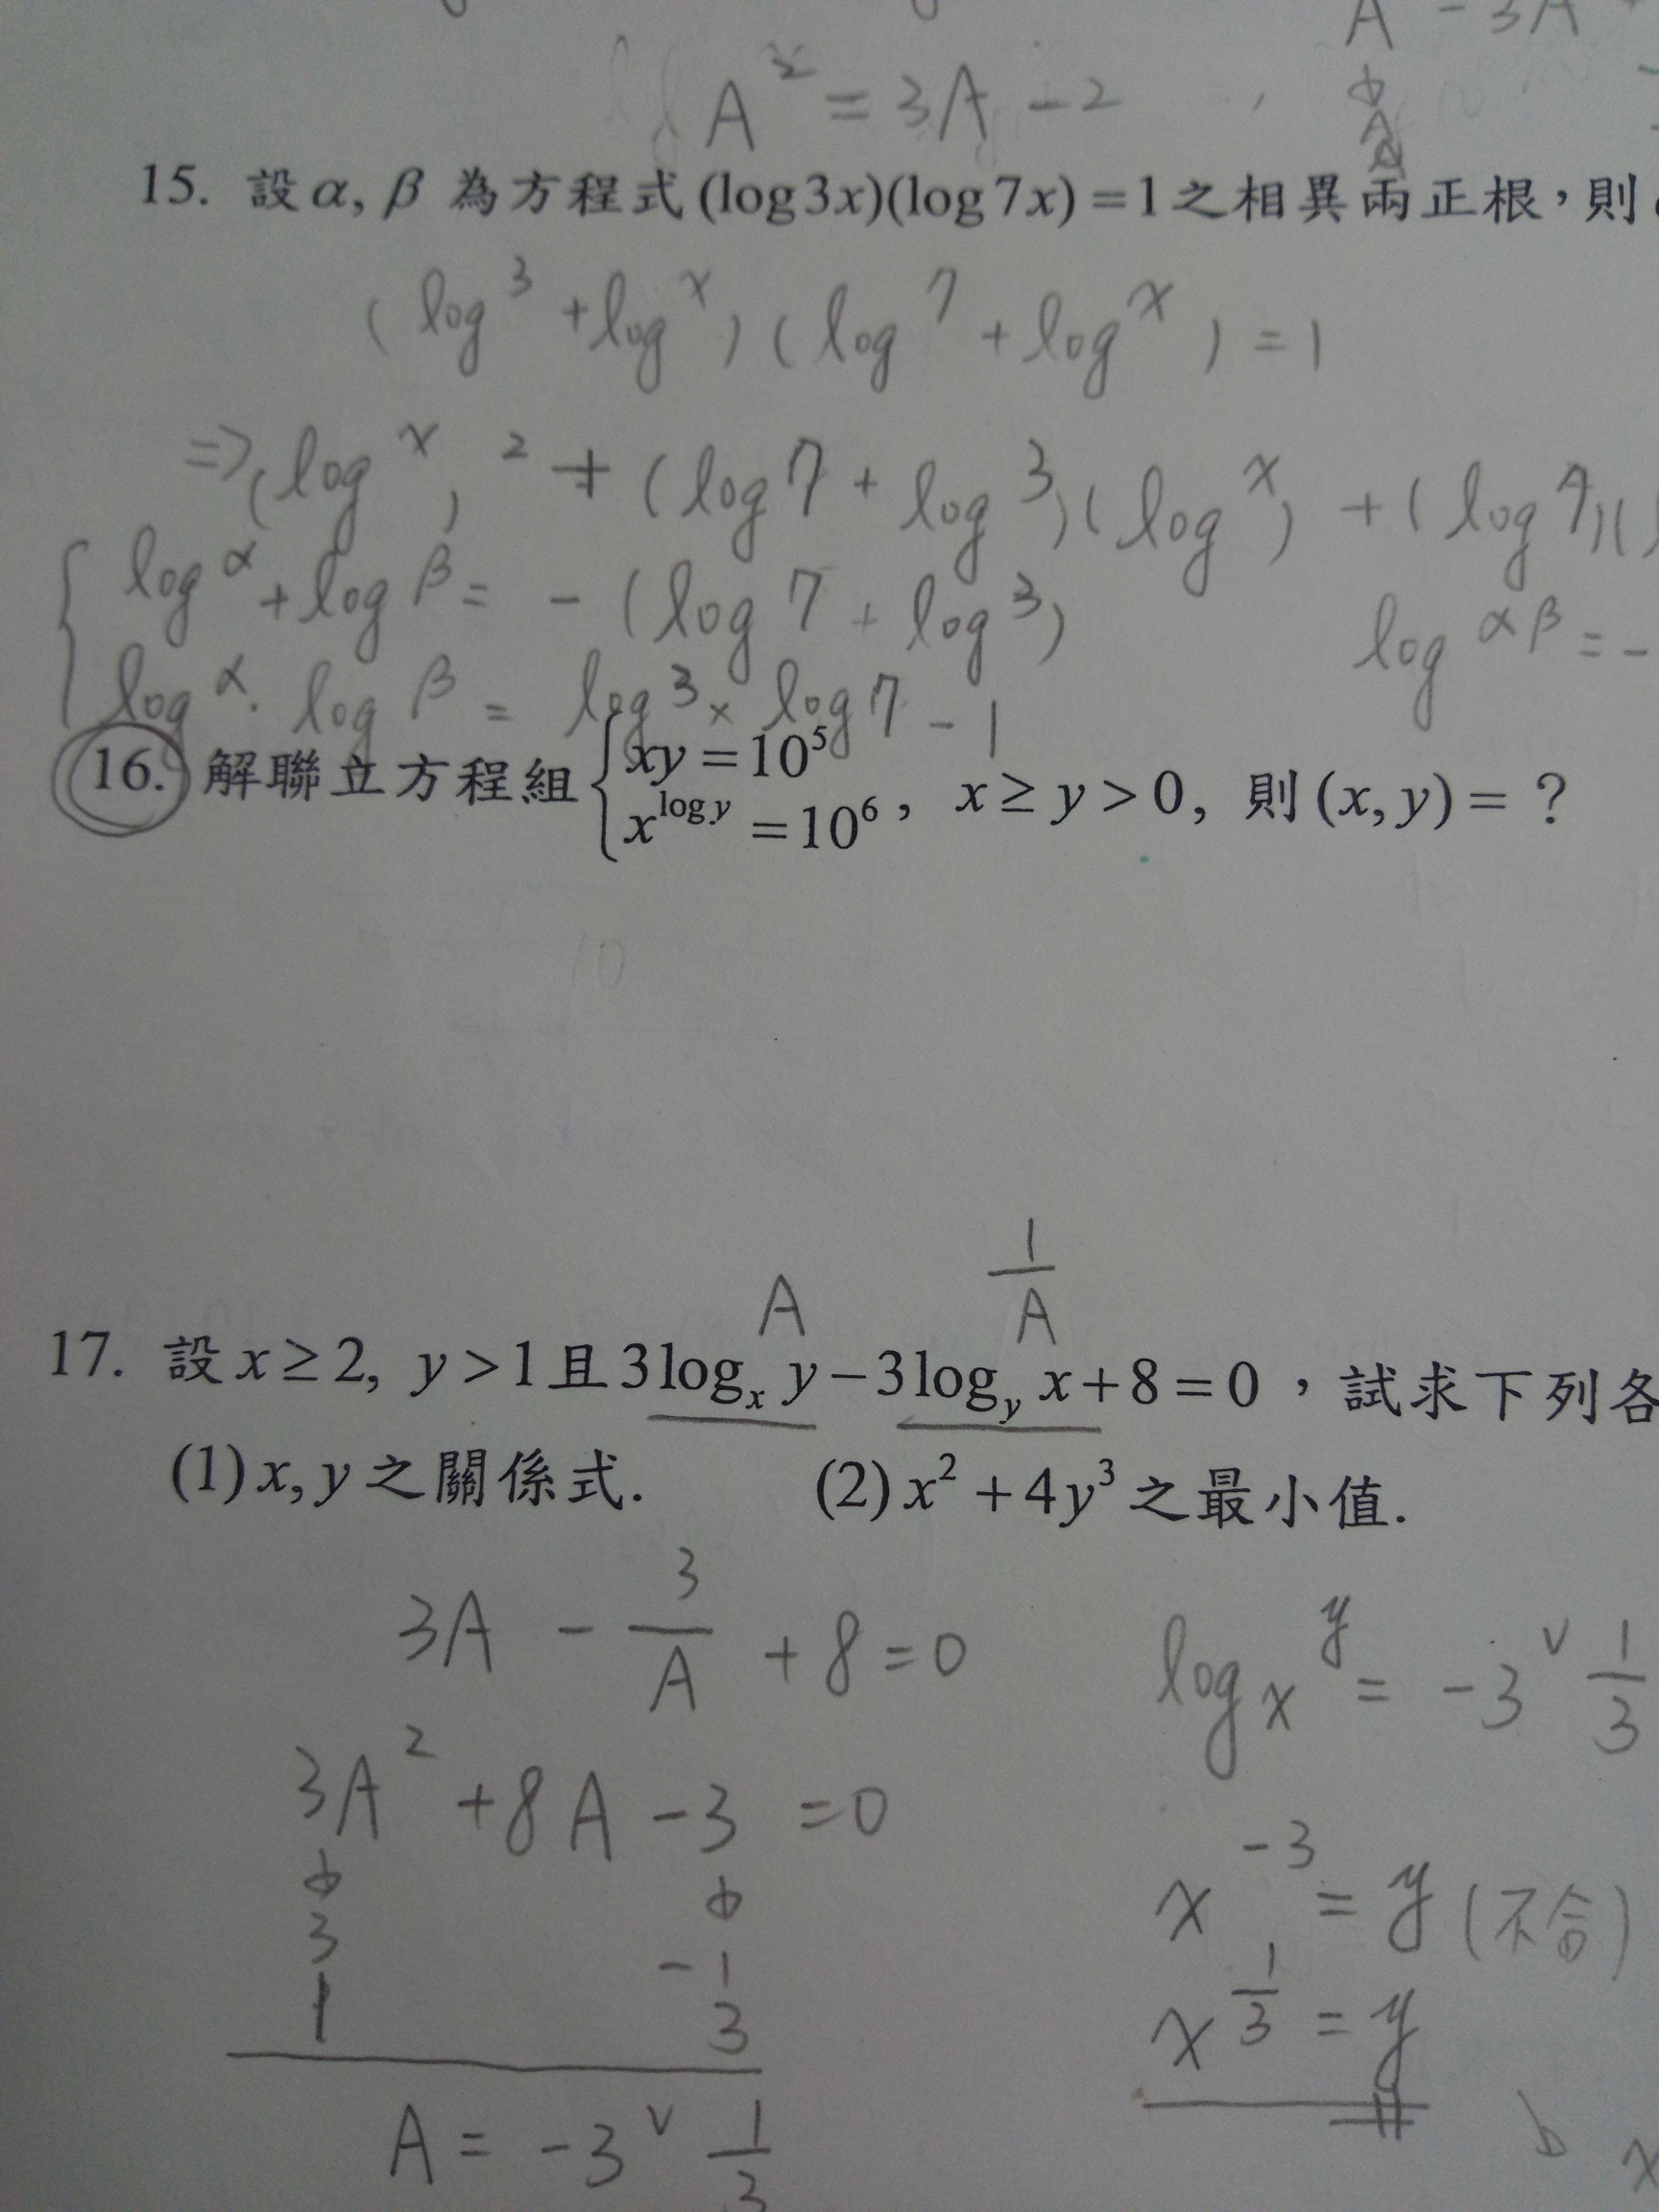 A - 3A
A² = 3A - 2
15. 設α, β 為方程式(log3x)(log7x)=1之相異兩正根，則
(log3 + logx)(log7 + logx) = 1
⇒(logx)² + (log7 + log3)(logx) + (log7)(
logα + logβ = -(log7 + log3)
logαβ = -
logα · logβ = log3 × log7 - 1
16. 解聯立方程組 { xy = 10⁵
x^(log y) = 10⁶ , x ≥ y > 0, 則(x, y) = ?
A
1/A
17. 設x ≥ 2, y > 1且3logₓ y - 3log_y x + 8 = 0，試求下列各
(1) x, y之關係式. (2) x² + 4y³之最小值.
3A - 3/A + 8 = 0
logₓ y = -3 ∨ 1/3
3A² + 8A - 3 = 0
3 -1
1 3
x⁻³ = y (不合)
x^(1/3) = y
A = -3 ∨ 1/3